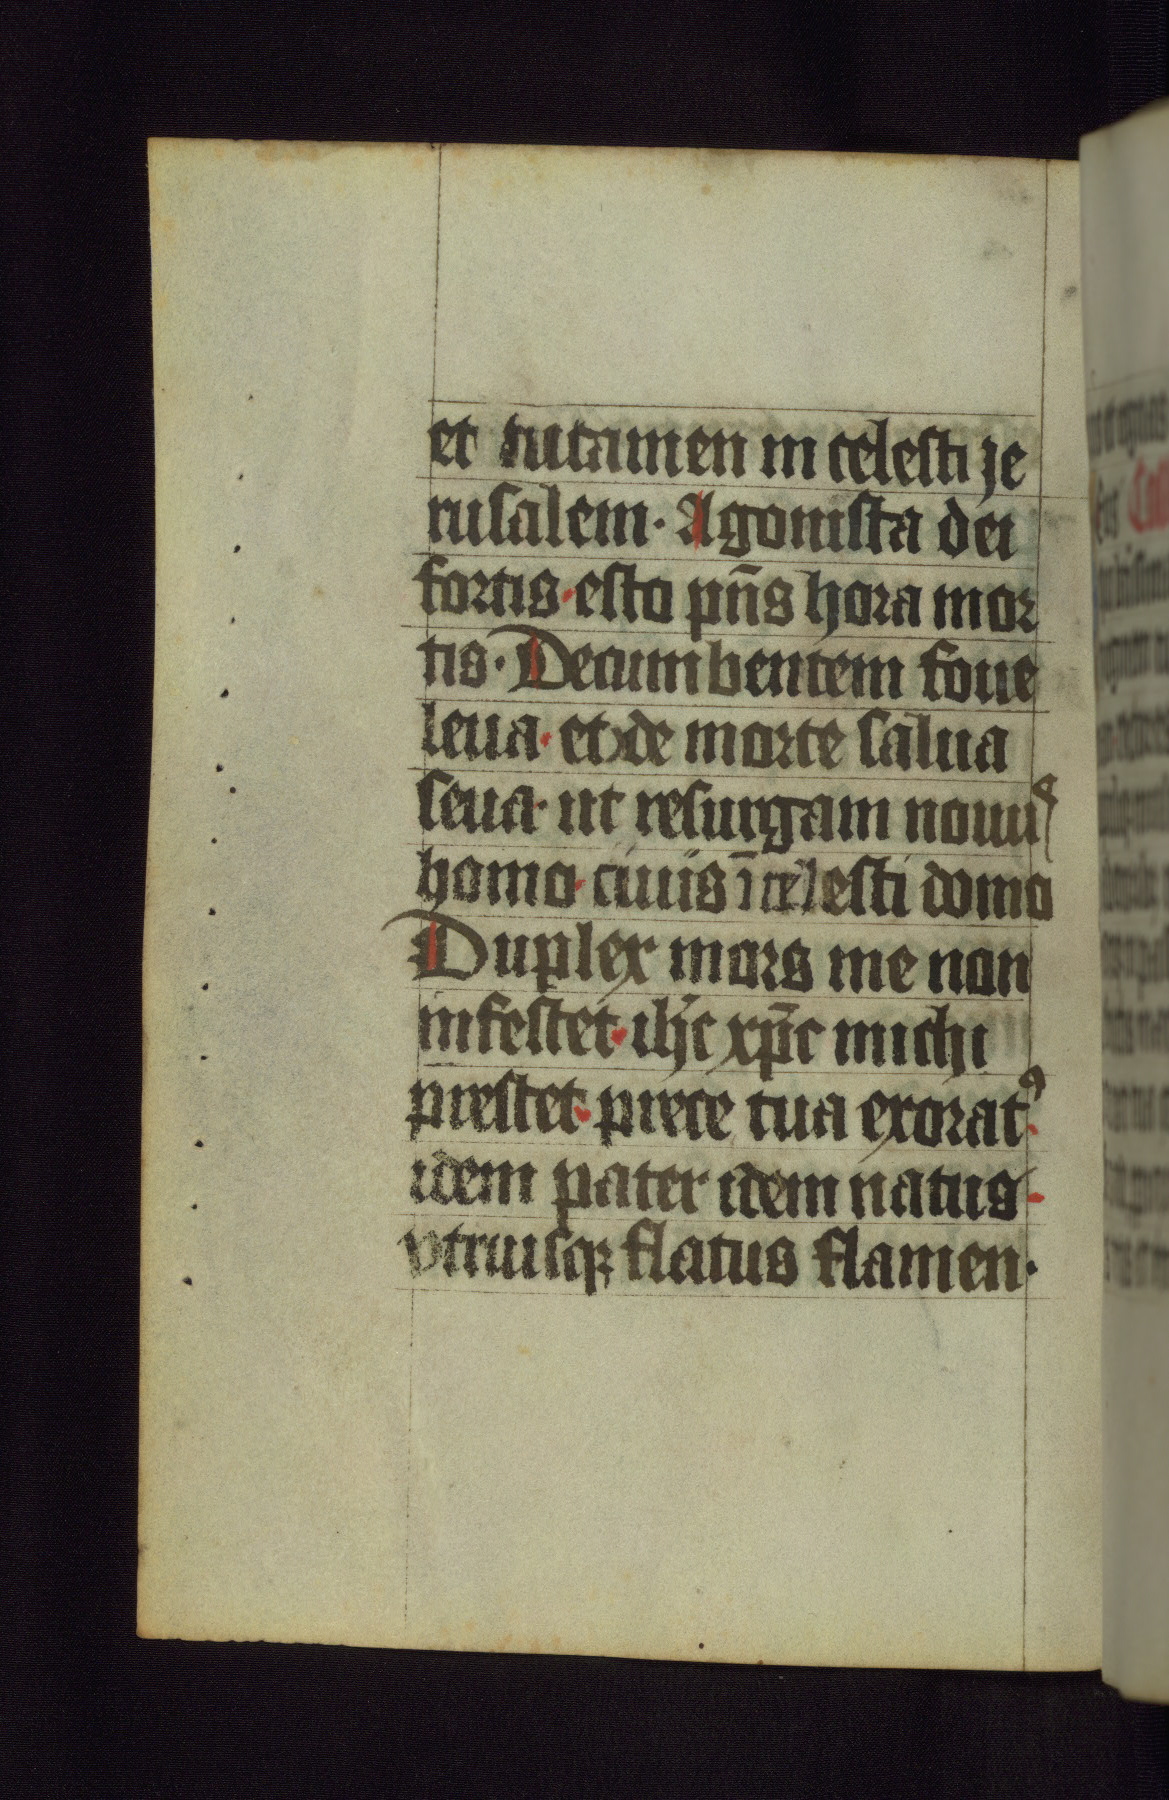 et tutamen in celesti je
rusalem· Agonista dei
fortis· esto pn̄s hora mor
tis· Decumbentem foue
leua· et de morte salua
seua· ut resurgam nouus
homo· ciuis ī celesti domo
Duplex mors me non
infestet· ihc̄ xpc̄ michi
prestet· prece tua exoratꝰ·
idem pater idem natus·
vtriusqꝫ flatus flamen·